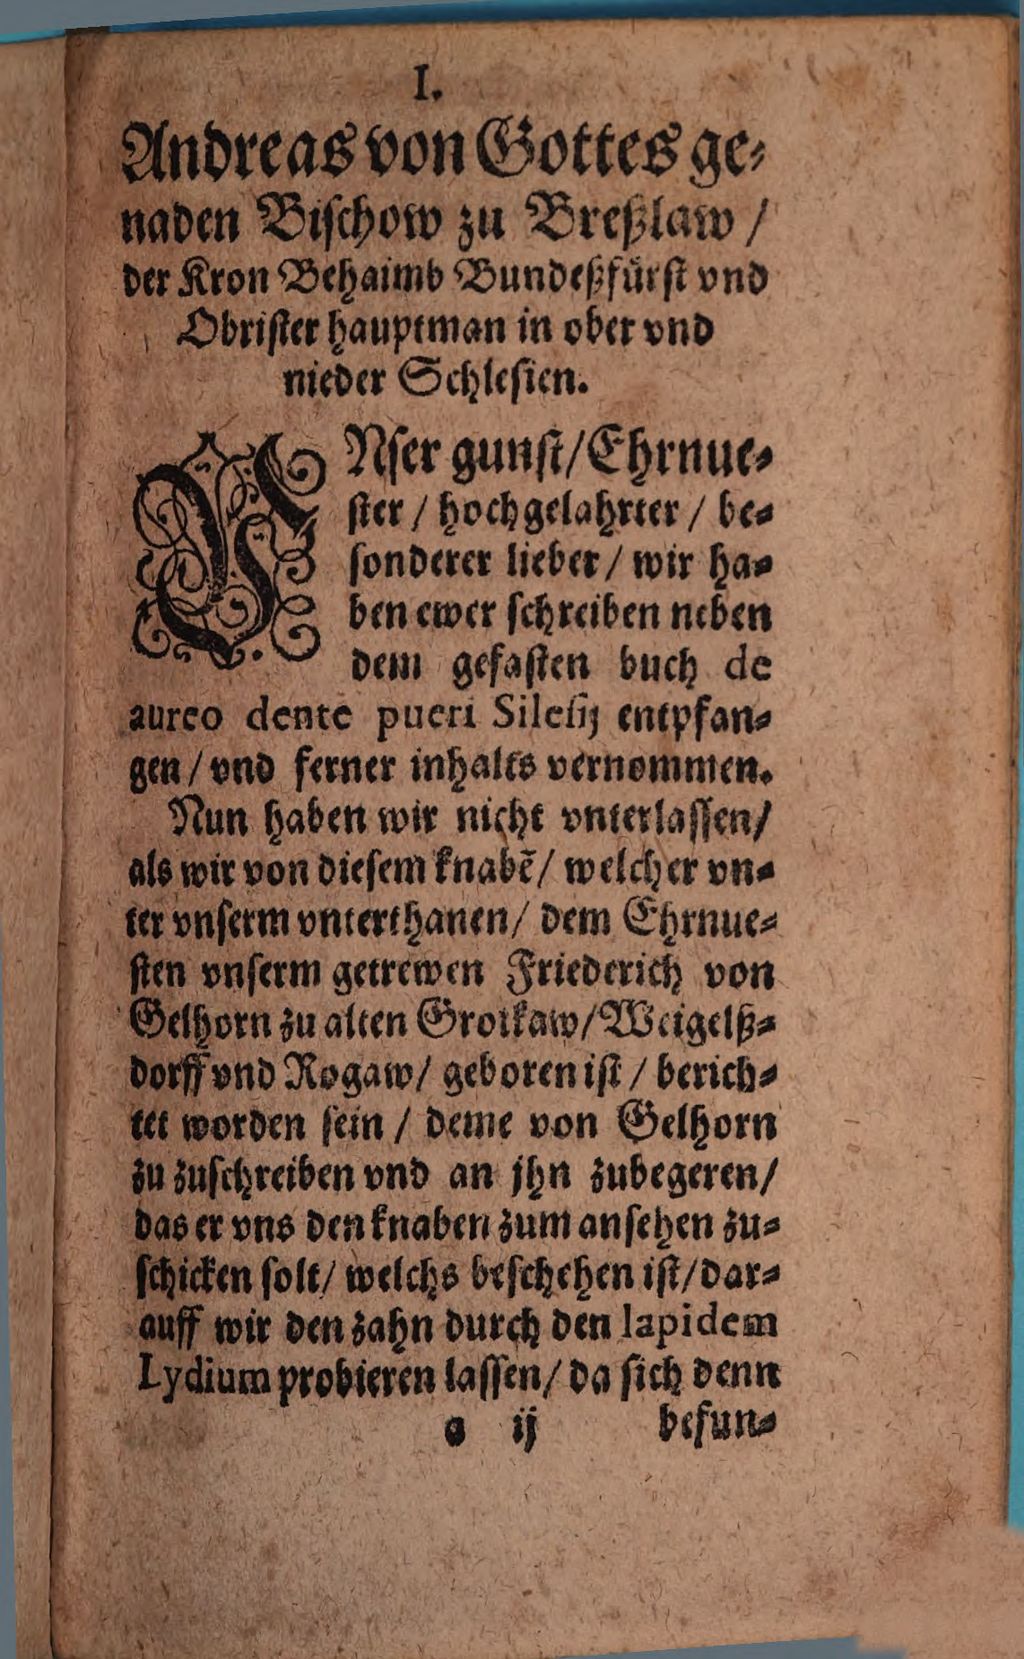 I.
Andreas von Gottes ge⸗
naden Bischow zu Breßlaw /
der Kron Behaimb Bundeßfürst vnd
Obrister hauptman in ober vnd
nieder Schlesien.
VNser gunst/Ehrnue⸗
ster / hochgelahrter / be⸗
sonderer lieber / wir ha⸗
ben ewer schreiben neben
dem gefasten buch de
aureo dente pueri Silesij entpfan⸗
gen / vnd ferner inhalts vernommen.
Nun haben wir nicht vnterlassen/
als wir von diesem knabē/ welcher vn⸗
ter vnserm vnterthanen/ dem Ehrnue⸗
sten vnserm getrewen Friederich von
Gelhorn zu alten Grotkaw/Weigelß⸗
dorff vnd Rogaw/ geboren ist / berich⸗
tet worden sein / deme von Gelhorn
zu zuschreiben vnd an jhn zubegeren/
das er vns den knaben zum ansehen zu⸗
schicken solt/ welchs beschehen ist/dar⸗
auff wir den zahn durch den lapidem
Lydium probieren lassen/ da sich denn
a ij befun⸗